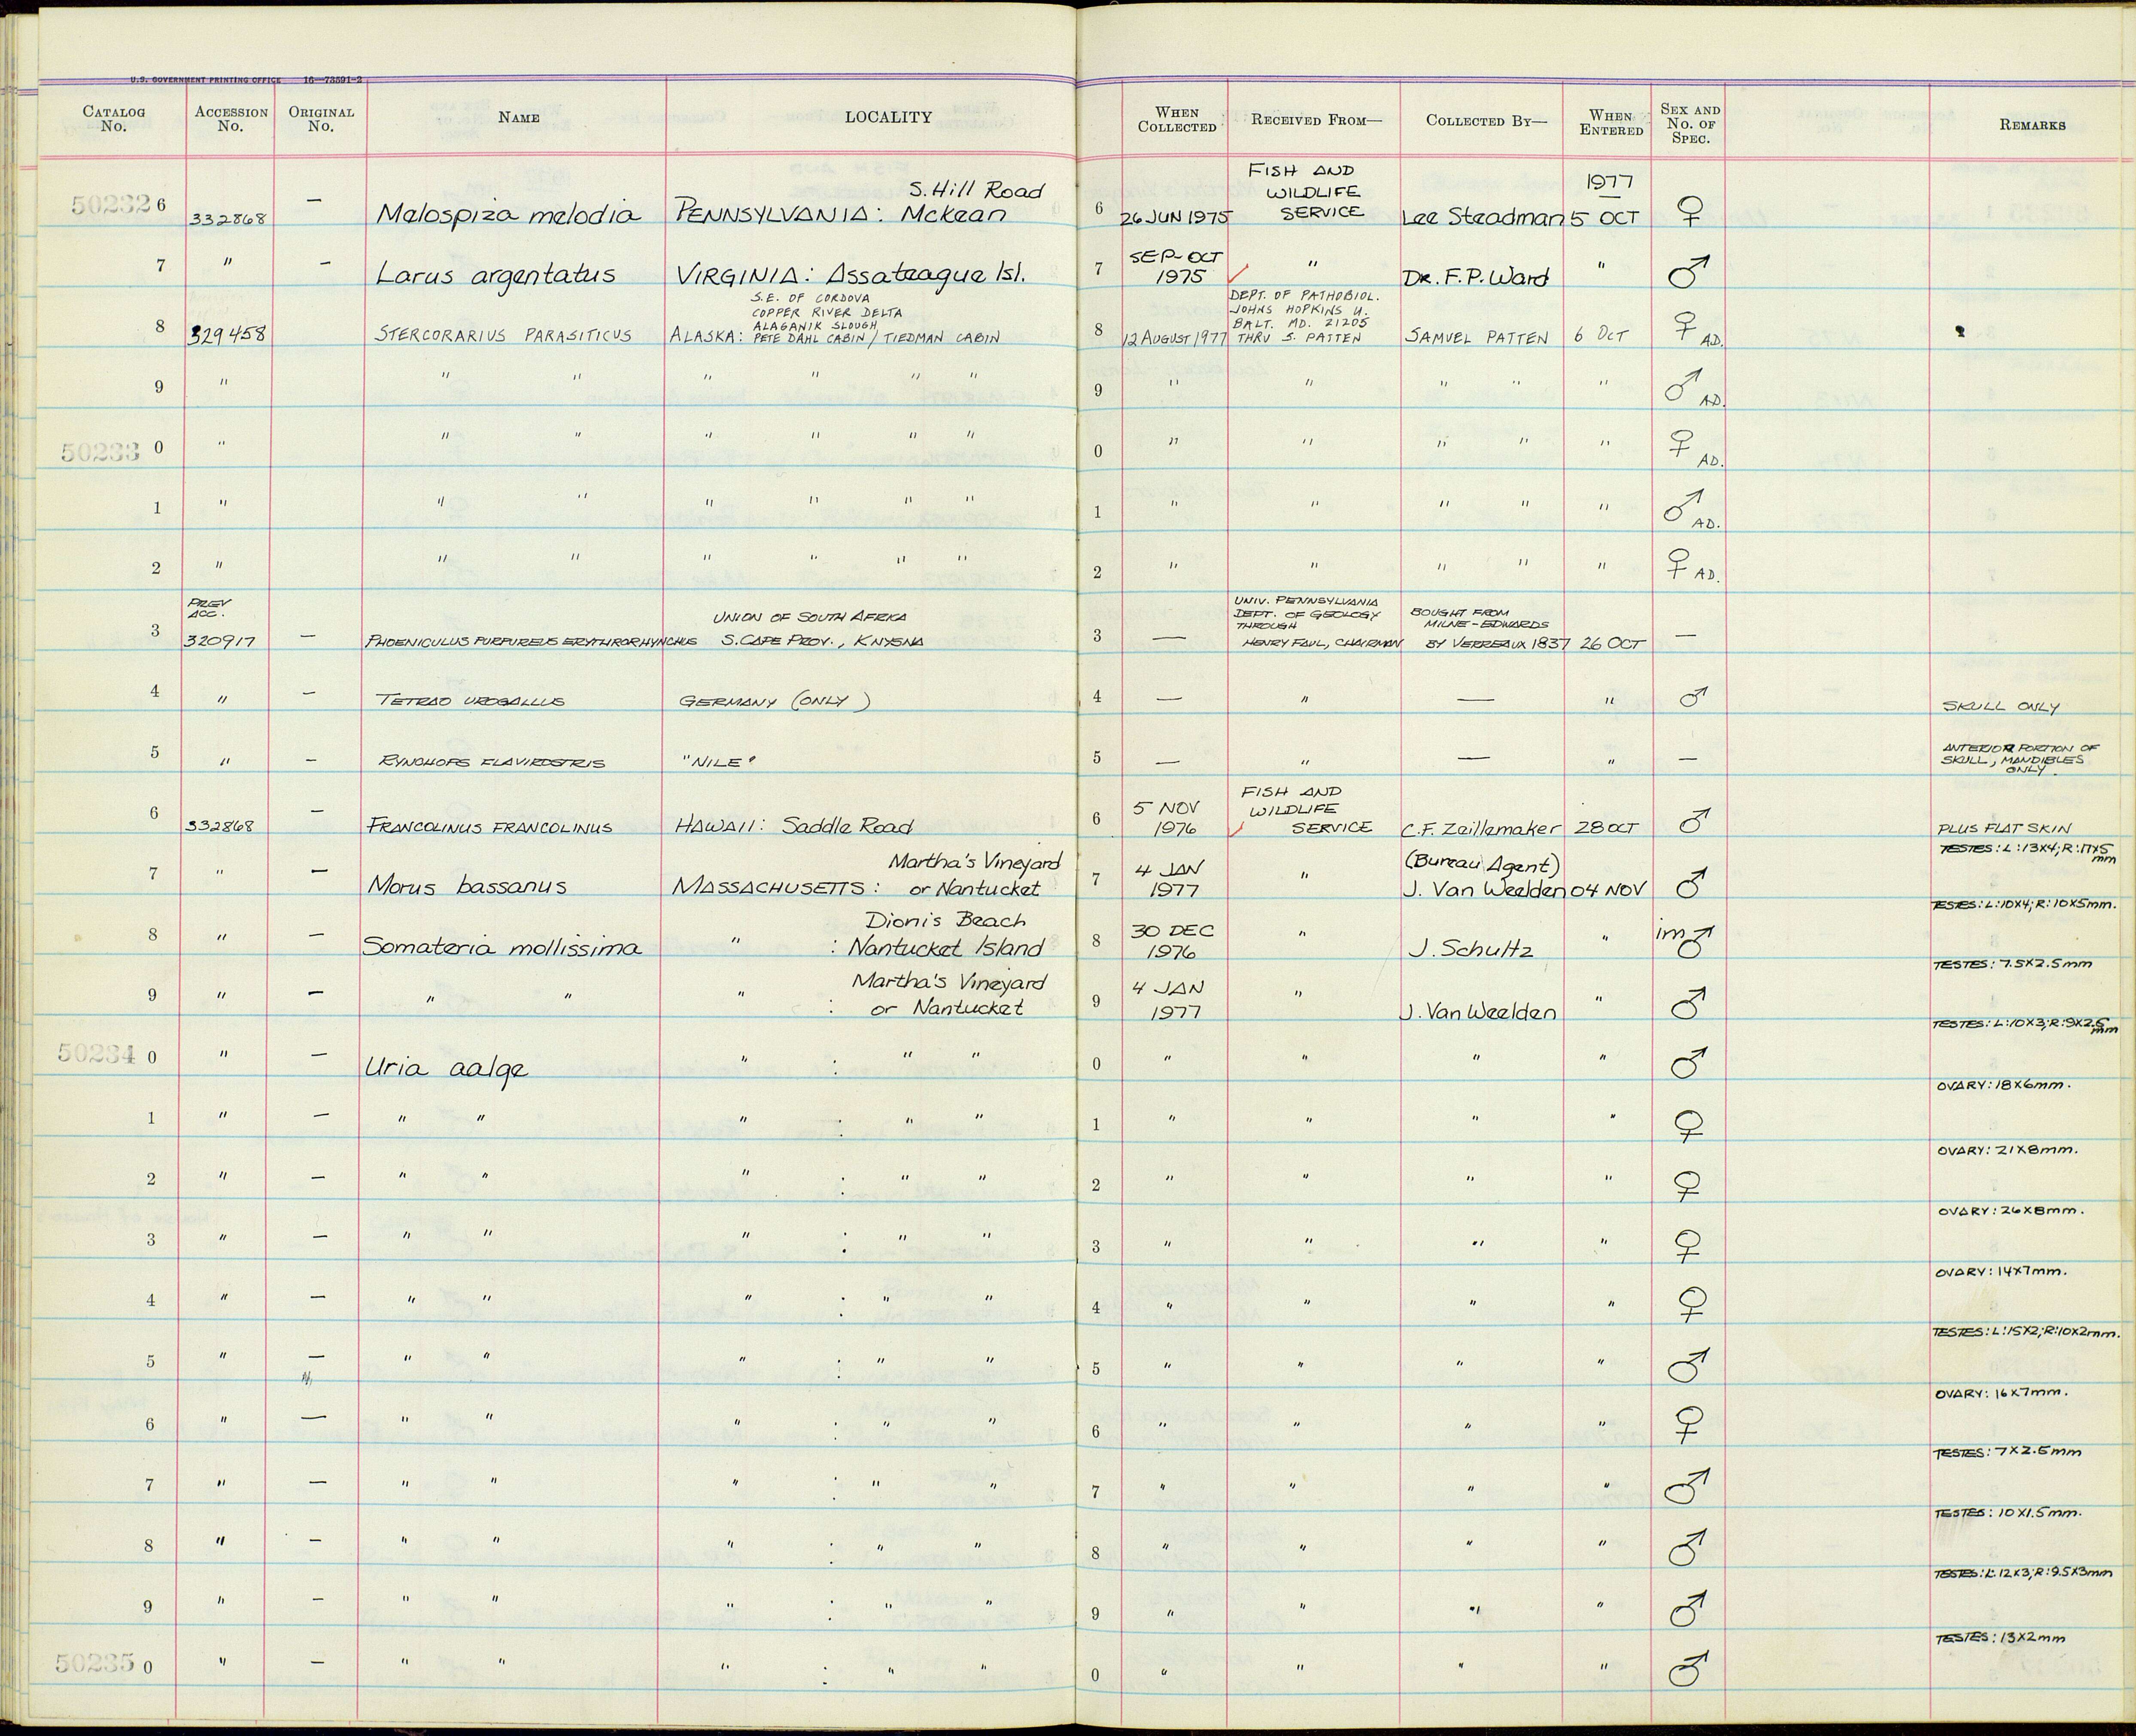 U.S. GOVERNMENT PRINTING OFFICE 16—73591-2
CATALOG No. ACCESSION No. ORIGINAL No. NAME LOCALITY WHEN COLLECTED RECEIVED FROM— COLLECTED BY— WHEN ENTERED SEX AND No. OF SPEC. REMARKS
S. Hill Road FISH AND WILDLIFE 1977
50232 6 332868 — Melospiza melodia PENNSYLVANIA: Mckean 6 26 JUN 1975 SERVICE Lee Steadman 5 OCT ♀
7 " — Larus argentatus VIRGINIA: Assateague Isl. 7 SEP-OCT 1975 ✓ " Dr. F.P. Ward " ♂
S.E. OF CORDOVA DEPT. OF PATHOBIOL.
COPPER RIVER DELTA JOHNS HOPKINS U.
ALAGANIK SLOUGH BALT. MD. 21205
8 329458 STERCORARIUS PARASITICUS ALASKA: PETE DAHL CABIN / TIEDMAN CABIN 8 12 AUGUST 1977 THRU S. PATTEN SAMUEL PATTEN 6 OCT ♀ AD.
9 " " " " " " " 9 " " " " " ♂ AD.
50233 0 " " " " " " " 0 " " " " " ♀ AD.
1 " " " " " " " 1 " " " " " ♂ AD.
2 " " " " " " " 2 " " " " " ♀ AD.
PREV ACC. UNIV. PENNSYLVANIA
UNION OF SOUTH AFRICA DEPT. OF GEOLOGY BOUGHT FROM
THROUGH MILNE-EDWARDS
3 320917 — PHOENICULUS PURPUREUS ERYTHRORHYNCHUS S. CAPE PROV., KNYSNA 3 — HENRY FAUL, CHAIRMAN BY VERREAUX 1837 26 OCT —
4 " — TETRAO UROGALLUS GERMANY (ONLY) 4 — " — " ♂ SKULL ONLY
5 " — RYNCHOPS FLAVIROSTRIS "NILE" 5 — " — " — ANTERIOR PORTION OF SKULL, MANDIBLES ONLY.
FISH AND WILDLIFE
6 332868 — FRANCOLINUS FRANCOLINUS HAWAII: Saddle Road 6 5 NOV 1976 ✓ SERVICE C.F. Zeillemaker 28 OCT ♂ PLUS FLAT SKIN
Martha's Vineyard (Bureau Agent) TESTES: L:13X4; R:17X5 mm
7 " — Morus bassanus MASSACHUSETTS: or Nantucket 7 4 JAN 1977 " J. Van Weelden 04 NOV ♂
Dionis Beach TESTES: L:10X4; R:10X5mm.
8 " — Somateria mollissima " : Nantucket Island 8 30 DEC 1976 " J. Schultz " im ♂
Martha's Vineyard TESTES: 7.5X2.5mm
9 " — " " " : or Nantucket 9 4 JAN 1977 " J. Van Weelden " ♂
TESTES: L:10X3; R:9X2.5 mm
50234 0 " — Uria aalge " : " " 0 " " " " ♂
OVARY: 18X6mm.
1 " — " " " : " " 1 " " " " ♀
OVARY: 21X8mm.
2 " — " " " : " " 2 " " " " ♀
OVARY: 26X8mm.
3 " — " " " : " " 3 " " " " ♀
OVARY: 14X7mm.
4 " — " " " : " " 4 " " " " ♀
TESTES: L:15X2; R:10X2mm.
5 " — " " " : " " 5 " " " " ♂
OVARY: 16X7mm.
6 " — " " " : " " 6 " " " " ♀
TESTES: 7X2.5mm
7 " — " " " : " " 7 " " " " ♂
TESTES: 10X1.5mm.
8 " — " " " : " " 8 " " " " ♂
TESTES: L:12X3; R:9.5X3mm
9 " — " " " : " " 9 " " " " ♂
TESTES: 13X2mm
50235 0 " — " " " : " " 0 " " " " ♂